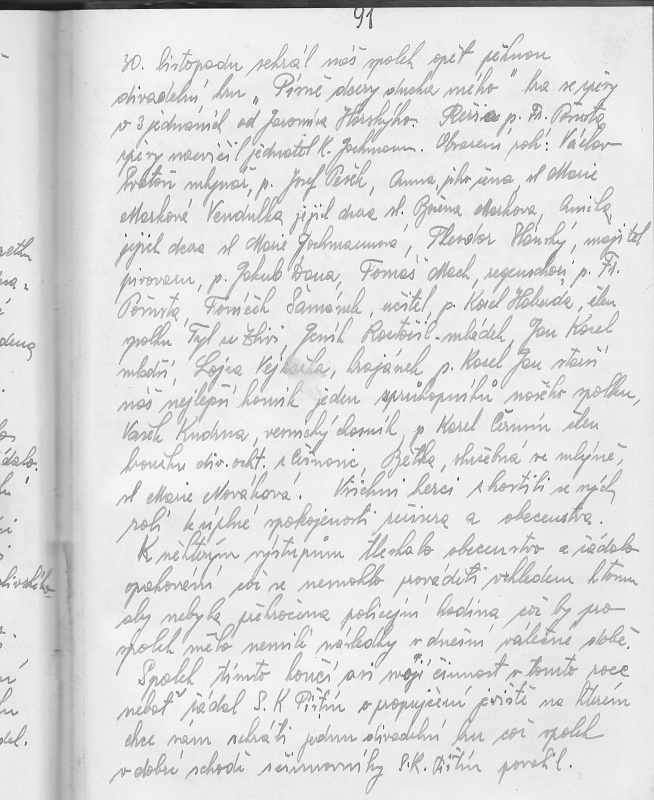 91
30. listopadu sehrál náš spolek opět pěknou
divadelní hru „Písně dcery ducha mého" hra se zpěvy
v 3 jednáních od Jaromíra Hořského. Režie p. Fr. Pošusta
zpěvy nacvičil jednatel K. Jochmann. Obsazení rolí: Václav
mlynář, p. Josef Pešek, Anna, jeho žena, sl Marie
Marková Vendulka, jejich dcera sl. Božena Markova, Anička,
jejich dcera sl Marie Jochmannová, Theodor Hanský, majitel
pivovaru, p. Jakub Vana, Tomáš Mach, regenschori, p. Fr.
Toníček Šamánek, učitel, p. Karel Habada, člen
spolku Tyl ze Zlivi, Jeník Roztočil mládek, Jan Karel
mladší, Lojza Vejskalka, krajánek p. Karel Jan starší
náš nejlepší komik jeden z průkopníků našeho spolku,
Vašek Kudrna, vesnický chasník, p Karel Čermín člen
kroužku div. ocht. z Češnovic, Bětka, služebná ve mlýně,
sl Marie Nováková. Všichni herci zhostili se svých
rolí k úplné spokojenosti režisera a obecenstva.
K některým výstupům tleskalo obecenstvo a žádalo
opakování což se nemohlo prováděti vzhledem k tomu
aby nebyla překročena policejní hodina což by pro
spolek mělo nemilé následky v dnešní válečné době.
Spolek tímto končí asi svojí činnost v tomto roce
neboť žádal S.K Pištín o propujčení jeviště na kterém
chce sám sehráti jednu divadelní hru což spolek
v dobré schodě s činnovníky S.K. Pištín povolil.